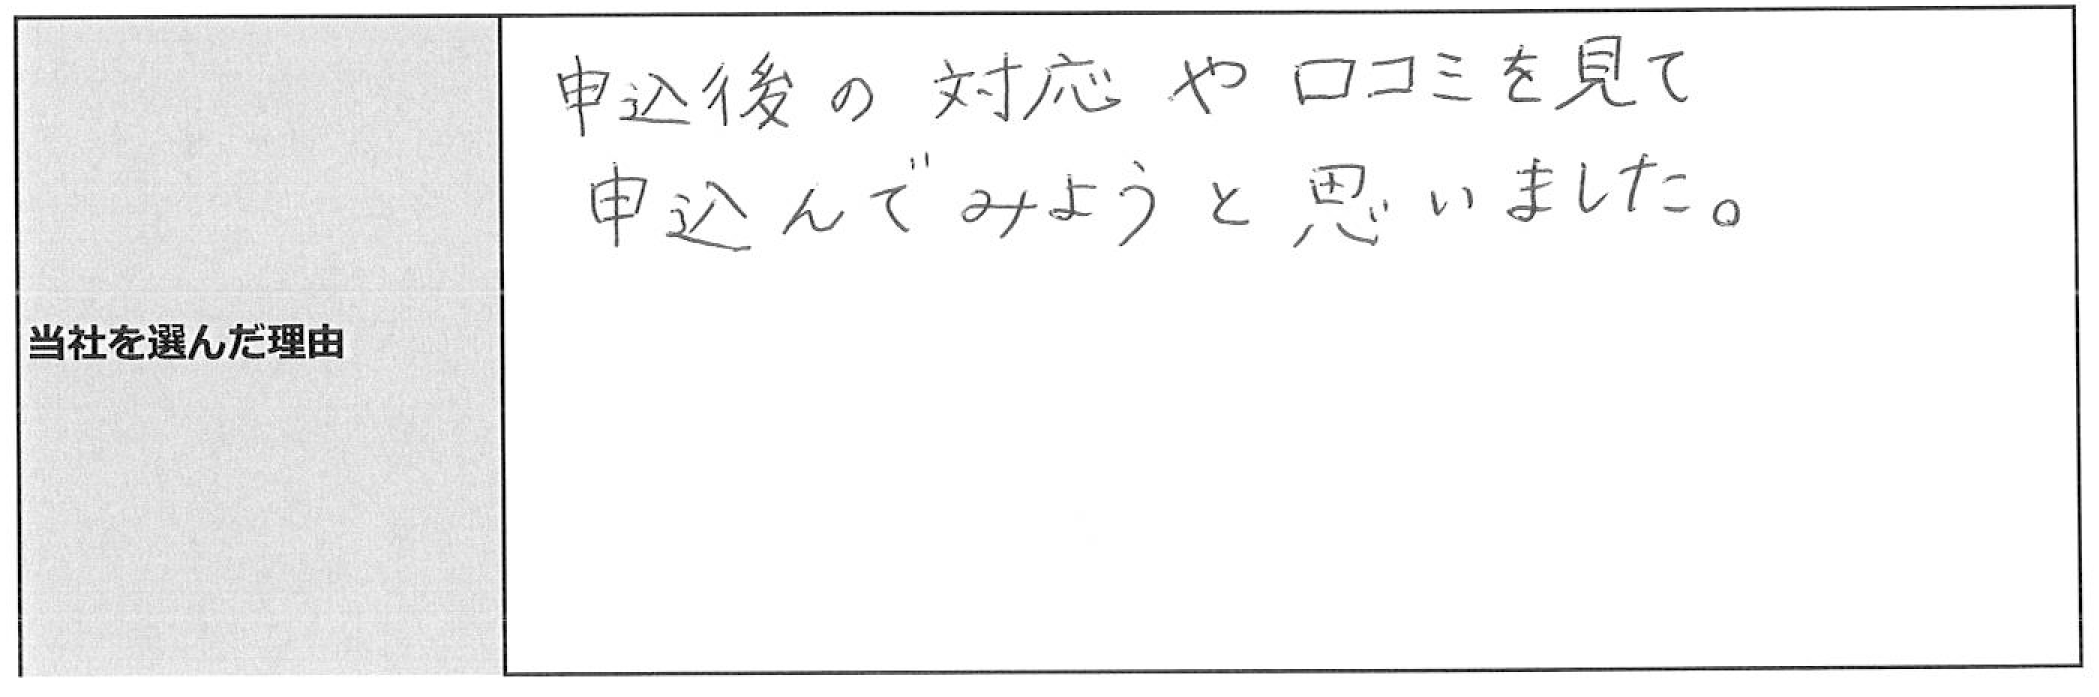 申込後の対応や口コミを見て
申込んでみようと思いました。
当社を選んだ理由